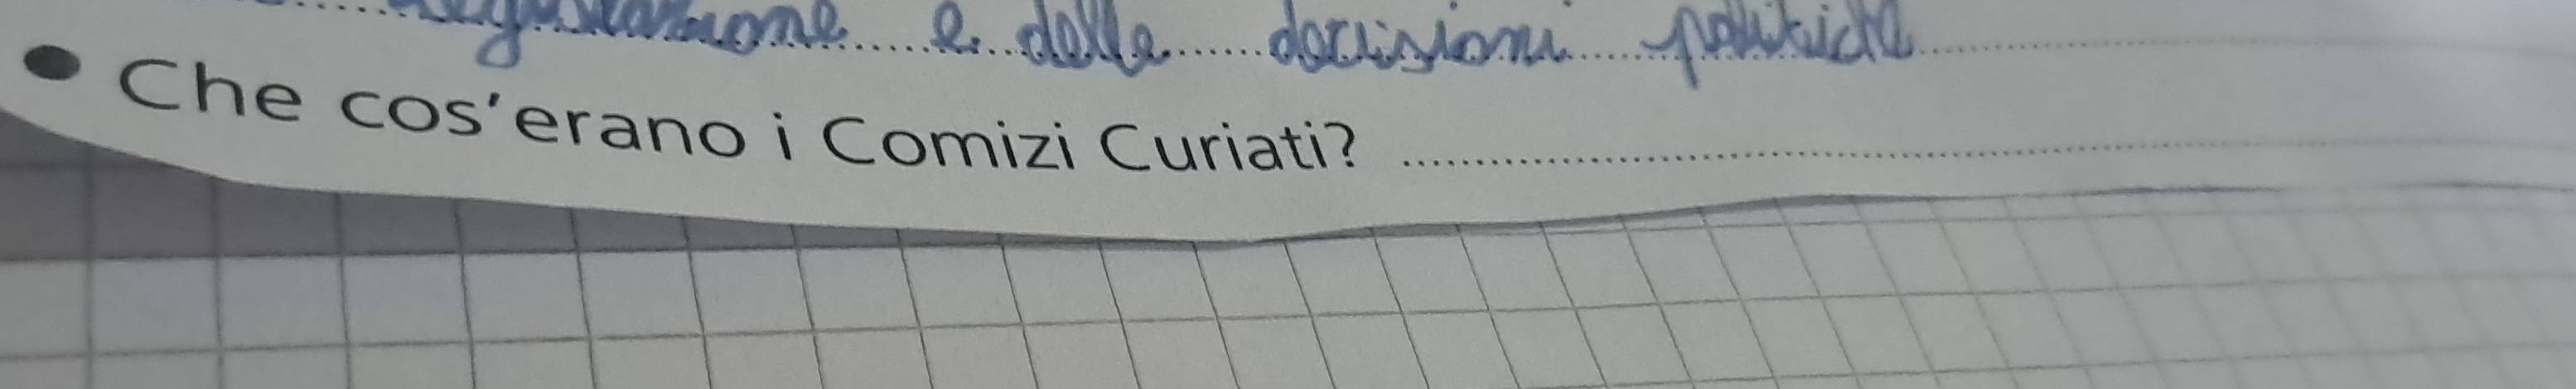 e delle decisioni politiche
• Che cos'erano i Comizi Curiati? ........................